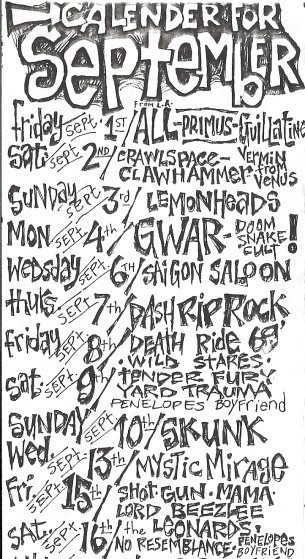 CALENDER FOR
SEPTEMBER
FROM L.A.
friday Sept. 1ST / ALL-PRIMUS-GUILLATINE
Sat. Sept 2ND / CRAWLSPACE- VERMIN
CLAWHAMMER from VENUS
SUNDAY Sept 3rd / LEMONHEADS
MON Sept. 4th / GWAR- DOOM SNAKE CULT!
WEDSday Sept. 6TH / SAIGON SALOON
thurs. Sept. 7th / DASH RIP ROCK
friday Sept. 8th / DEATH Ride 69,
WILD STARES.
Sat. Sept. 9th / TENDER FURY
YARD TRAUMA
PENELOPES BOYfriend
SUNDAY Sept 10th / SKUNK
Wed. Sept. 13th / MYSTIC MIRAGE
FRI. Sept. 15th / SHOT. GUN. MAMA.
LORD BEEZLEE
SAT. Sept. 16th / the LEONARDS.
NO RESEMBLANCE. PENELOPES BOYFRIEND